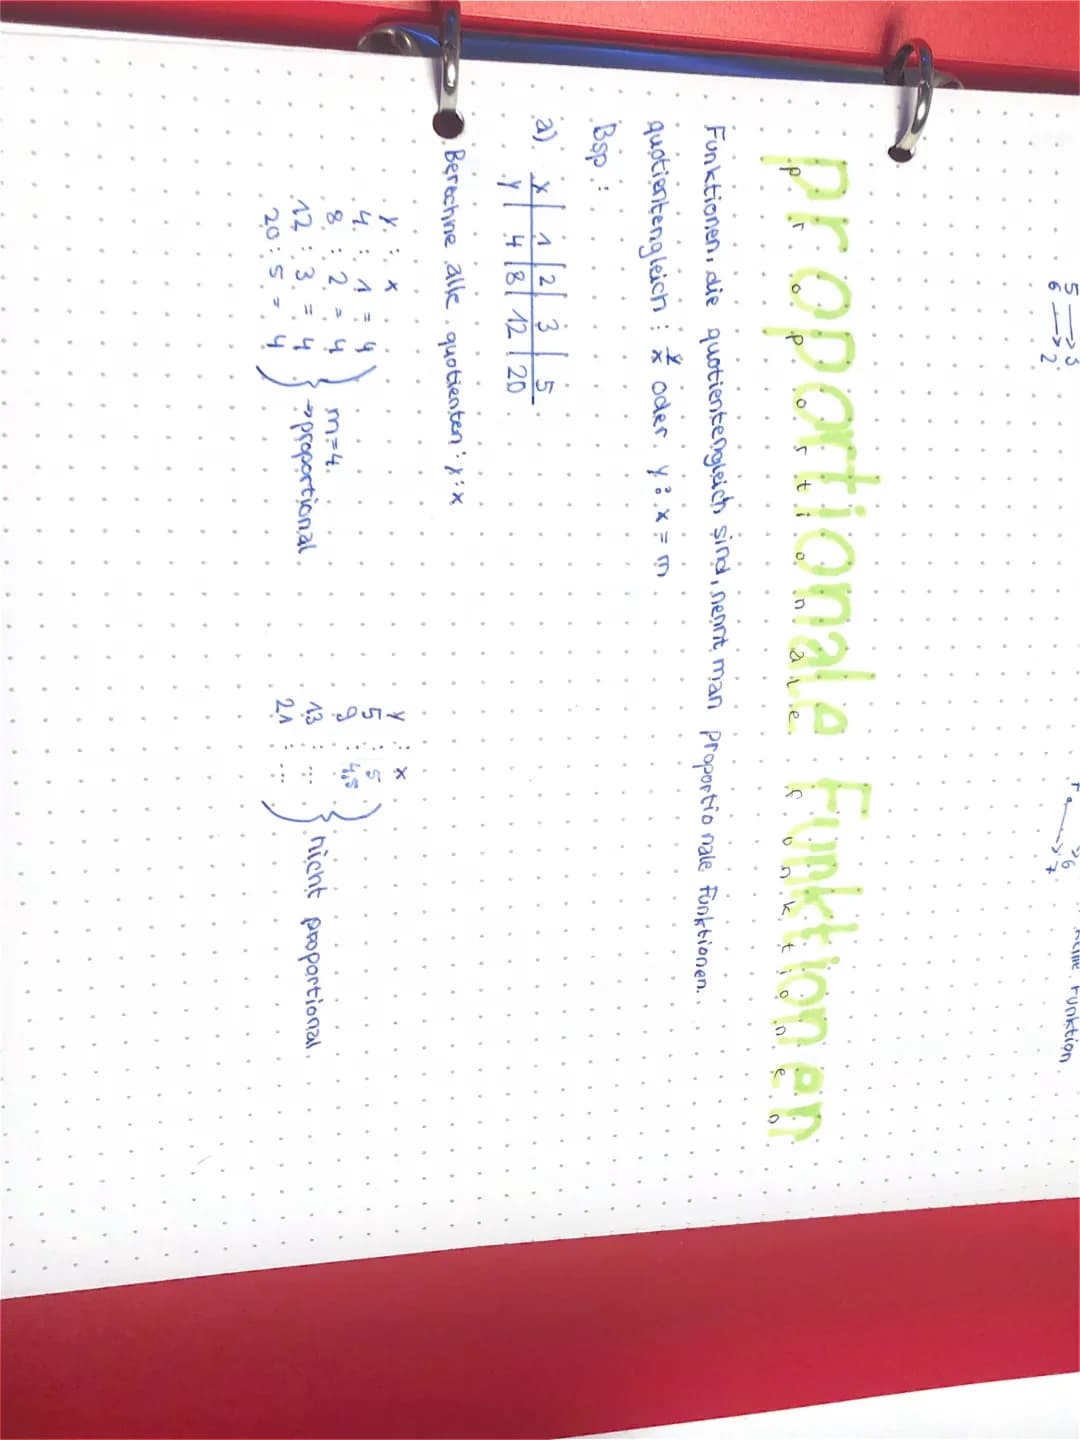 5 → 3
6 → 2
6
7
Funktion
proportionale Funktionen
proportionale funktionen
Funktionen, die quotientengleich sind, nennt man proportionale funktionen.
quotientengleich : y/x oder y : x = m
Bsp.:
a) x | 1 | 2 | 3 | 5
y | 4 | 8 | 12 | 20
Berechne alle quotienten : y : x
y : x
4 : 1 = 4
8 : 2 = 4
12 : 3 = 4
20 : 5 = 4
m = 4
→ proportional
y : x
5 : 5
9 : 4,5
13 : ...
21 : ...
nicht proportional